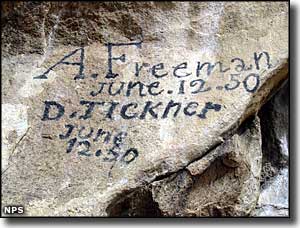 A. Freeman
June. 12. 50
D. Tickner
June
12. 50
NPS